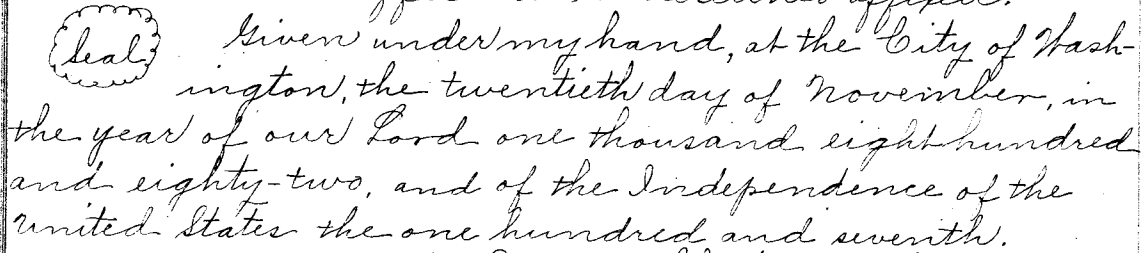 affixed.
Seal Given under my hand, at the City of Wash-
ington, the twentieth day of November, in
the year of our Lord one thousand eight hundred
and eighty-two, and of the Independence of the
United States the one hundred and seventh.